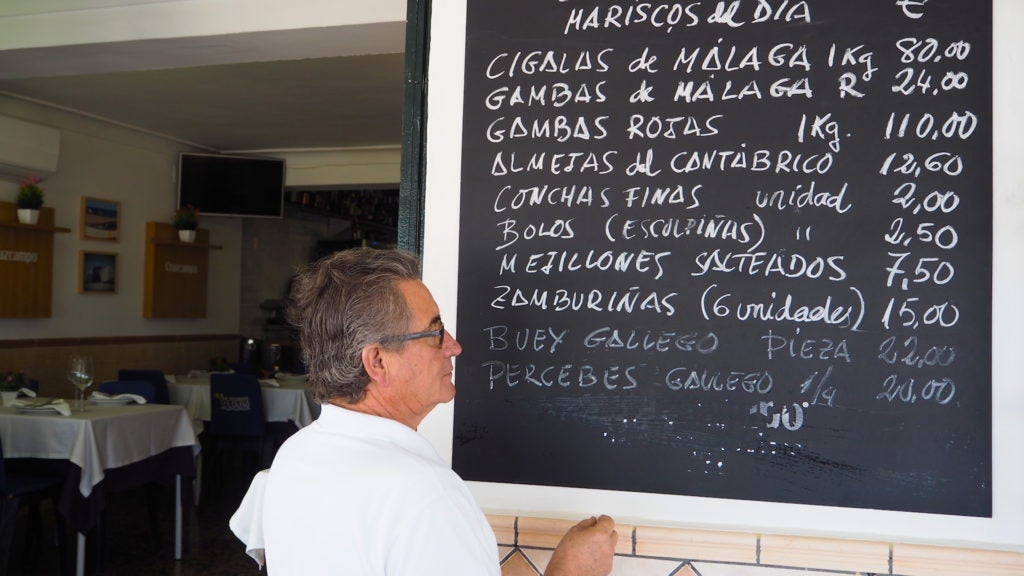 MARISCOS del DÍA €
CIGALAS de MÁLAGA 1Kg 80,00
GAMBAS de MÁLAGA R 24,00
GAMBAS ROJAS 1Kg. 110,00
ALMEJAS del CANTÁBRICO 12,60
CONCHAS FINAS unidad 2,00
BOLOS (ESCULPIÑAS) " 2,50
MEJILLONES SALTEADOS 7,50
ZAMBURIÑAS (6 unidades) 15,00
BUEY GALLEGO PIEZA 22,00
PERCEBES GALLEGO 20,00
Cruzcampo